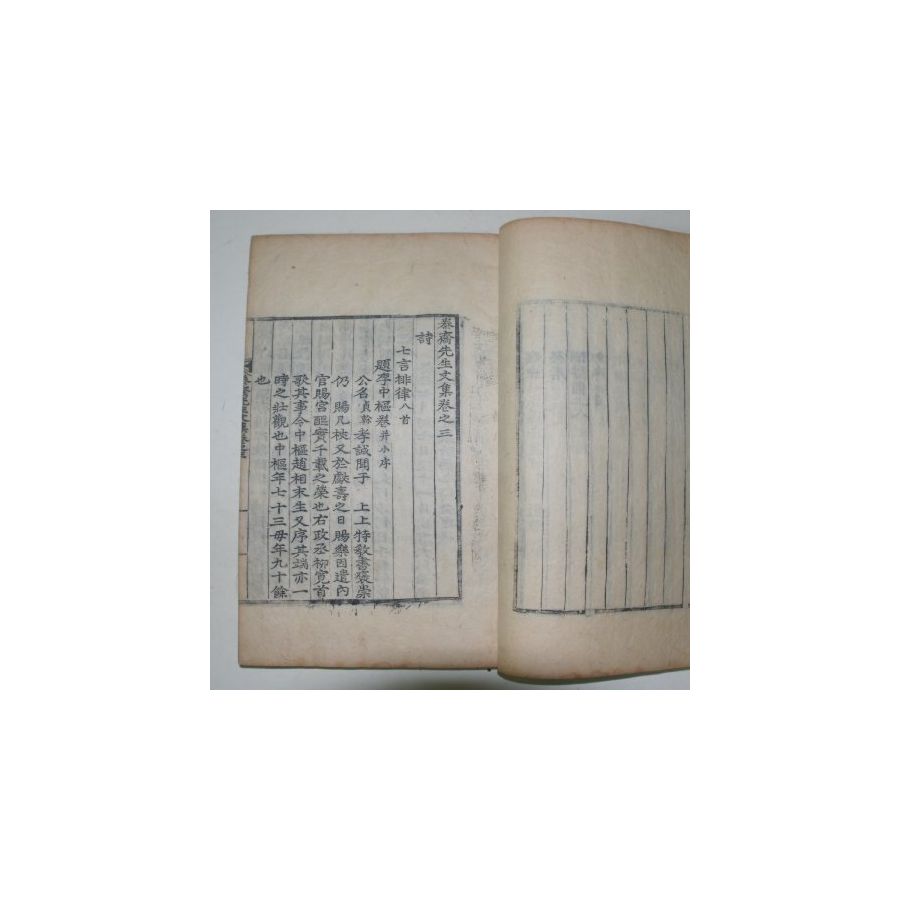 泰齋先生文集卷之三
詩
七言排律八首
題李中樞卷并小序
公名貞幹孝誠聞子 上上特敎書褒崇
仍 賜几杖又於獻壽之日賜樂因遣內
官賜宮醞實千載之榮也右政丞柳寬首
歌其事令中樞趙相末生又序其端亦一
時之壯觀也中樞年七十三母年九十餘
也